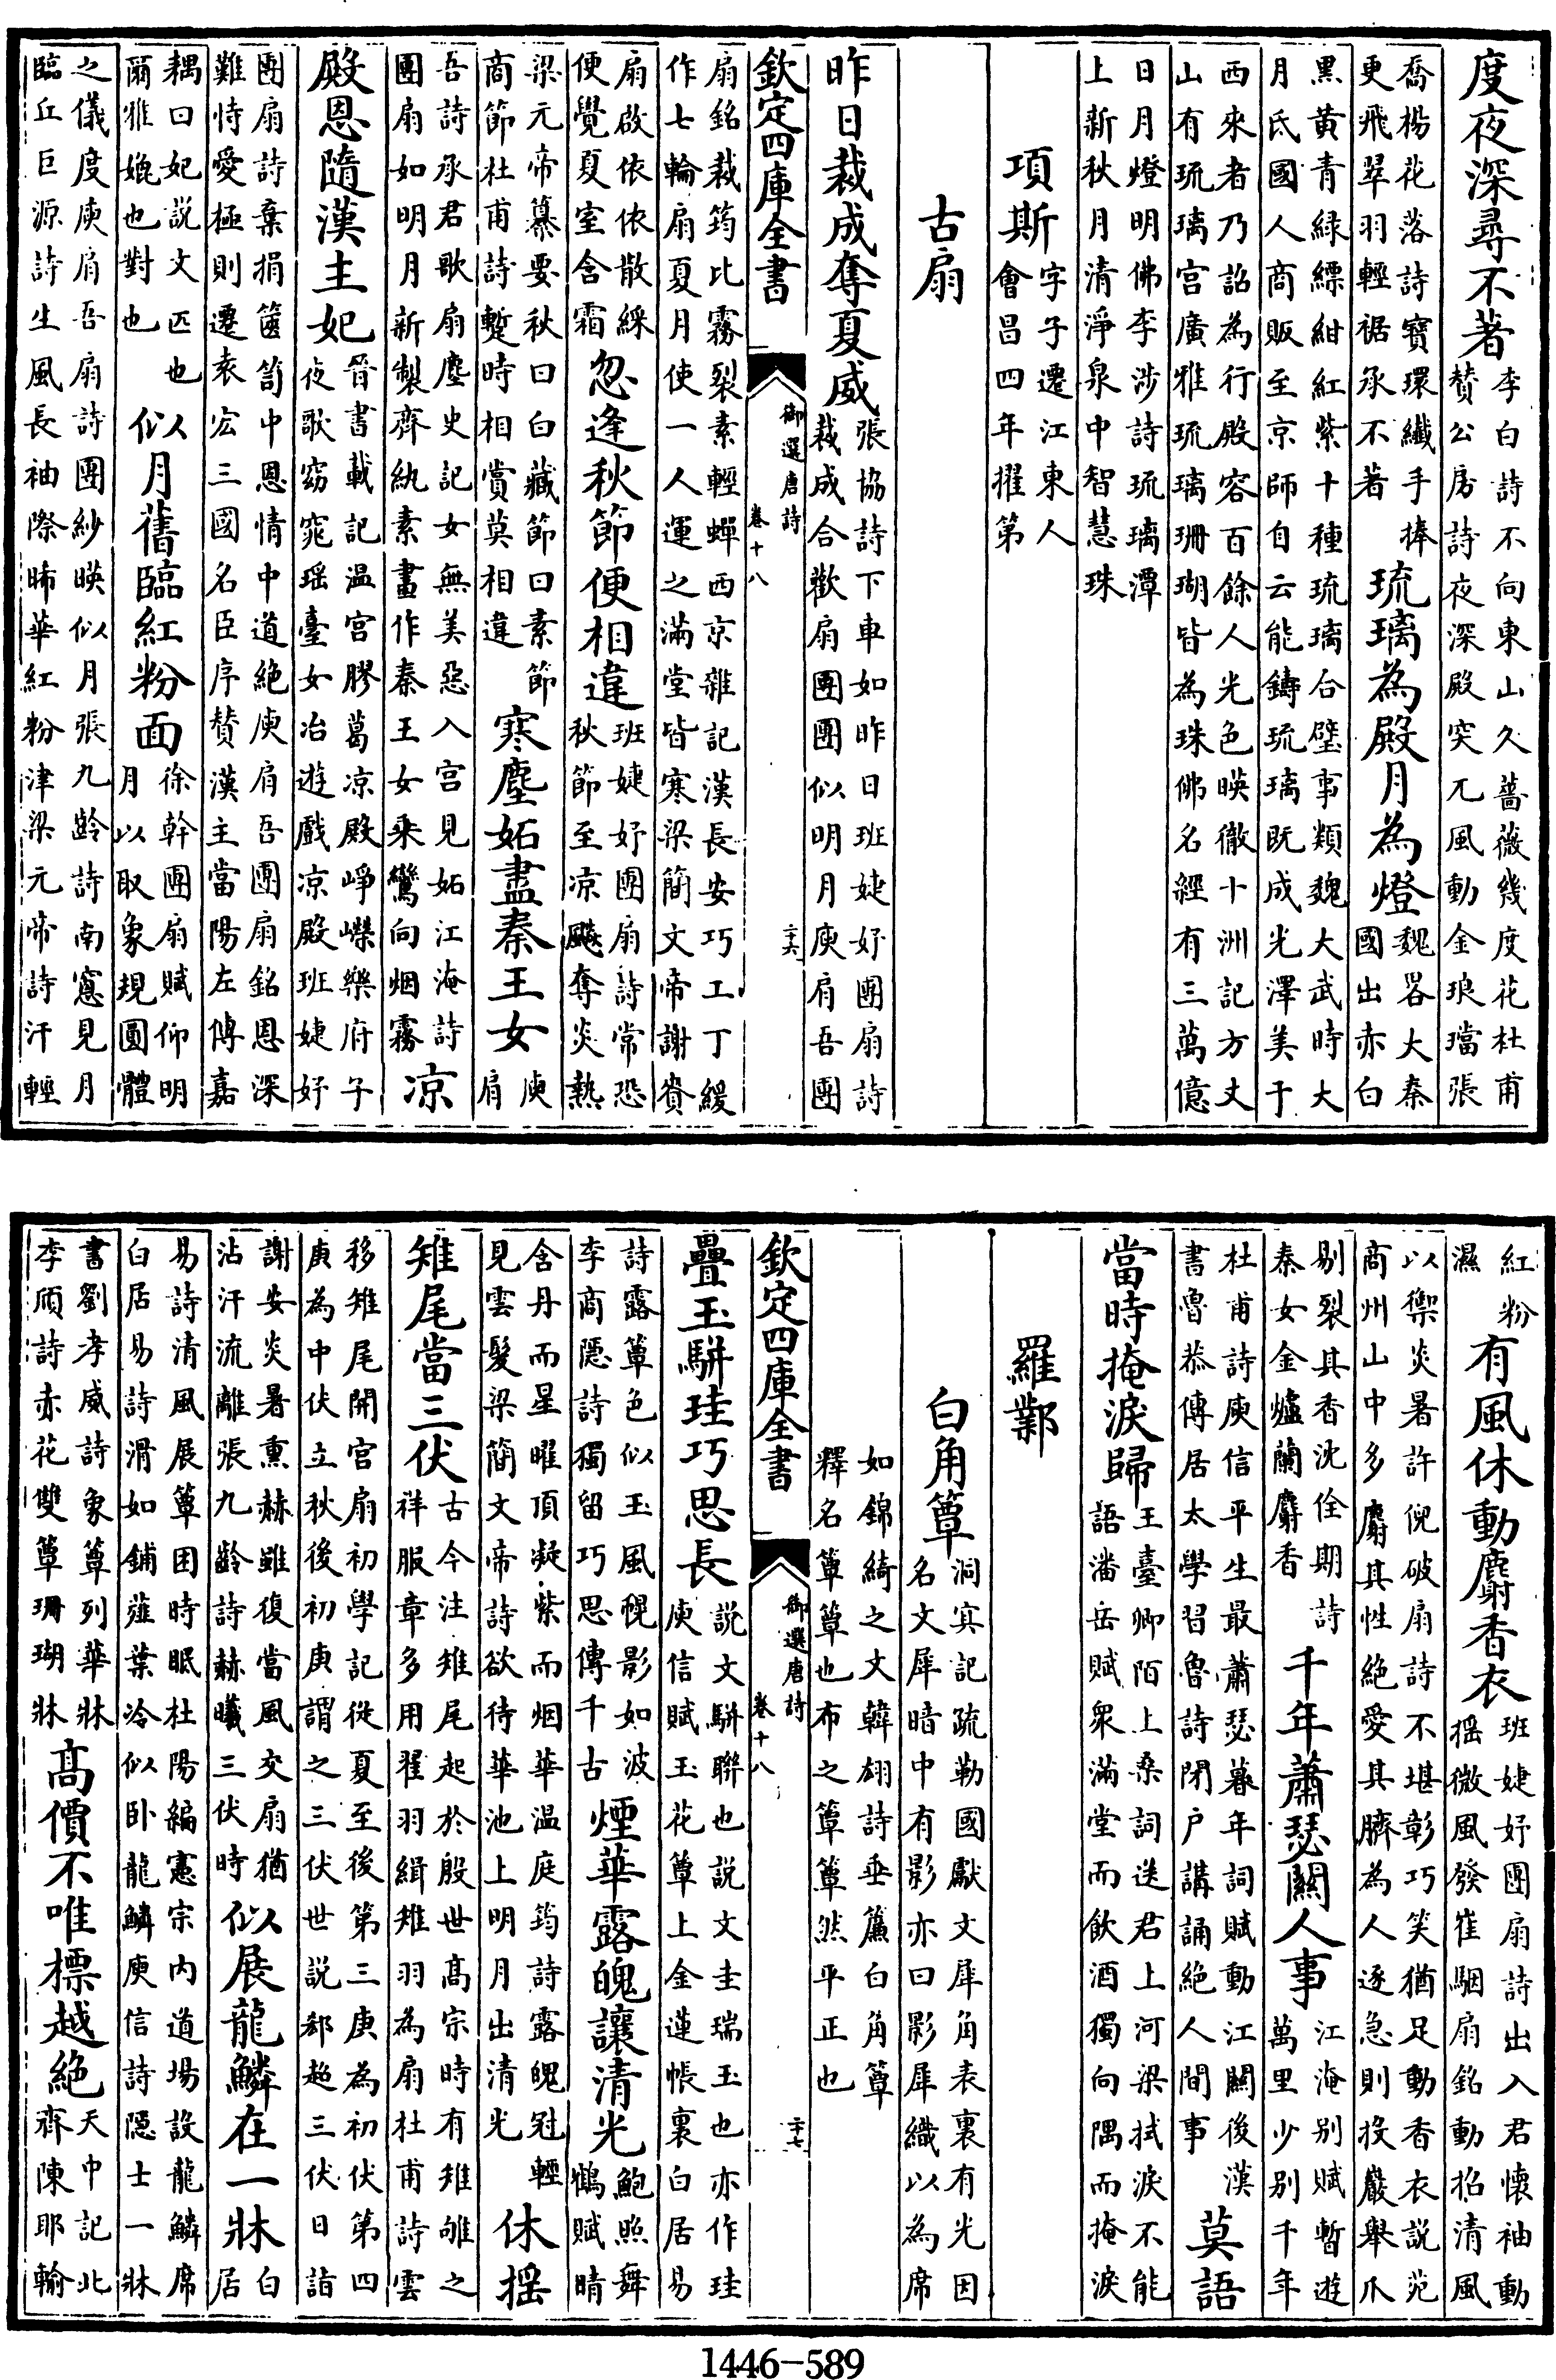 度夜深尋不著李白詩不向東山久薔薇幾度花杜甫贊公房詩夜深殿突兀風動金琅璫張
喬楊花落詩寶環纖手捧更飛翠羽輕裾承不著琉璃為殿月為燈魏畧大秦國出亦白
黒黄青緑縹紺紅紫十種琉璃合璧事類魏大武時大月氏國人商販至京師自云能鑄琉璃既成光澤美于
西來者乃詔為行殿容百餘人光色映徹十洲記方丈山有琉璃宮廣雅琉璃珊瑚皆為珠佛名經有三萬億
日月燈明佛李涉詩琉璃潭上新秋月清淨泉中智慧珠
項斯字子遷江東人會昌四年擢第
古扇
昨日裁成奪夏威張協詩下車如昨日班婕妤團扇詩裁成合歡扇團團似明月庾肩吾團
欽定四庫全書 御選唐詩 卷十八 二十六
扇銘裁筠比霧裂素輕蟬西京雜記漢長安巧工丁緩作七輪扇夏月使一人運之滿堂皆寒梁簡文帝謝賚
扇啟依依散綵便覺夏室含霜忽逢秋節便相違班婕妤團扇詩常恐秋節至凉飈奪炎熱
梁元帝纂要秋曰白藏節曰素節商節杜甫詩蹔時相賞莫相違寒塵妬盡秦王女庾肩
吾詩承君歌扇塵史記女無美惡入宮見妬江淹詩團扇如明月新製齊紈素畫作秦王女乘鸞向烟霧凉
殿恩隨漢主妃晉書載記温宮膠葛凉殿崢嶸樂府子夜歌窈窕瑶臺女冶遊戲凉殿班婕妤
團扇詩棄捐篋笥中恩情中道絶庾肩吾團扇銘恩深難恃愛極則遷袁宏三國名臣序贊漢主當陽左傳嘉
耦曰妃説文匹也爾雅媲也對也似月舊臨紅粉面徐幹團扇賦仰明月以取象規圓體
之儀度庾肩吾扇詩團紗映似月張九齡詩南窻見月臨丘巨源詩生風長袖際晞華紅粉津梁元帝詩汗輕
紅粉濕有風休動麝香衣班婕妤團扇詩出入君懷袖動揺微風發崔駰扇銘動招清風
以禦炎暑許倪破扇詩不堪彰巧笑猶足動香衣説苑商州山中多麝其性絶愛其臍為人逐急則投巖舉爪
剔裂其香沈佺期詩秦女金爐蘭麝香千年蕭瑟關人事江淹别賦暫遊萬里少别千年
杜甫詩庾信平生最蕭瑟暮年詞賦動江關後漢書魯恭傳居太學習魯詩閉户講誦絶人間事莫語
當時掩淚歸王臺卿陌上桑詞送君上河梁拭淚不能語潘岳賦衆滿堂而飲酒獨向隅而掩淚
羅鄴
白角簟洞㝠記疏勒國獻文犀角表裏有光因名文犀暗中有影亦曰影犀織以為席
如錦綺之文韓翃詩垂簾白角簟釋名簟簟也布之簟簟然平正也
欽定四庫全書 御選唐詩 卷十八 二十七
疊玉駢珪巧思長説文駢聯也説文圭瑞玉也亦作珪庾信賦玉花簟上金蓮帳裏白居易
詩露簟色似玉風幌影如波李商隱詩獨留巧思傳千古煙華露魄讓清光鮑照舞鶴賦晴
含丹而星曜頂凝紫而烟華温庭筠詩露魄冠輕見雲髮梁簡文帝詩欲待華池上明月出清光休揺
雉尾當三伏古今注雉尾起於殷世髙宗時有雉雊之祥服章多用翟羽緝雉羽為扇杜甫詩雲
移雉尾開宮扇初學記從夏至後第三庚為初伏第四庚為中伏立秋後初庚謂之三伏世説郄超三伏日詣
謝安炎暑熏赫雖復當風交扇猶沾汗流離張九齡詩赫曦三伏時似展龍鱗在一牀白居
易詩清風展簟困時眠杜陽編憲宗内道場設龍鱗席白居易詩滑如鋪薤葉冷似卧龍鱗庾信詩隱士一牀
書劉孝威詩象簟列華牀李頎詩赤花雙簟珊瑚牀髙價不唯標越絶天中記北齊陳耶輸
1446-589